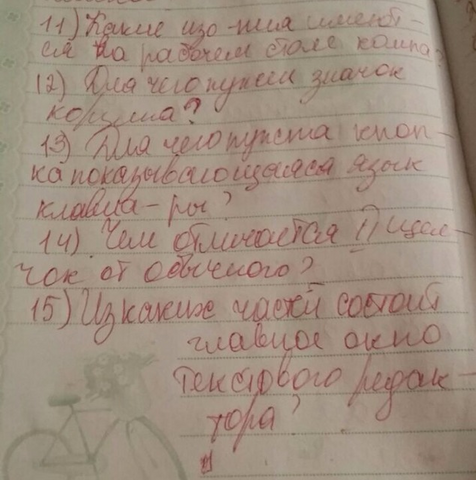 11) Какие изо-ния имеют-
ся на рабочем столе компа?
12) Для чего нужен значок
корзина?
13) Для чего нужна кноп-
ка показывающаяся язык
клавиа-ры?
14) Чем отличается П щел-
чок от обычного?
15) Из каких частей состоит
главное окно
текстового редак-
тора?